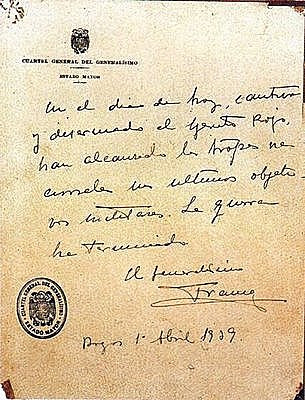 CUARTEL GENERAL DEL GENERALÍSIMO
ESTADO MAYOR
En el dia de hoy, cautivo
y desarmado el Ejercito Rojo,
han alcanzado las tropas na-
cionales sus ultimos objeti-
vos militares. La guerra
ha terminado
El Generalísimo
Franco
Burgos 1º Abril 1939.
CUARTEL GENERAL DEL GENERALISIMO
ESTADO MAYOR